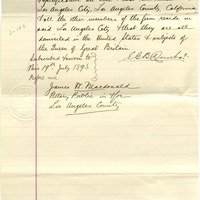 Los Angeles City, Los Angeles County, California
& all the other members of the firm reside in
said Los Angeles City & that they are all
domiciled in the United States & subjects of
the Queen of Great Britain
Subscribed & sworn to
this 19th July 1898
before me
James W. Macdonald
Notary Public in & for
Los Angeles County